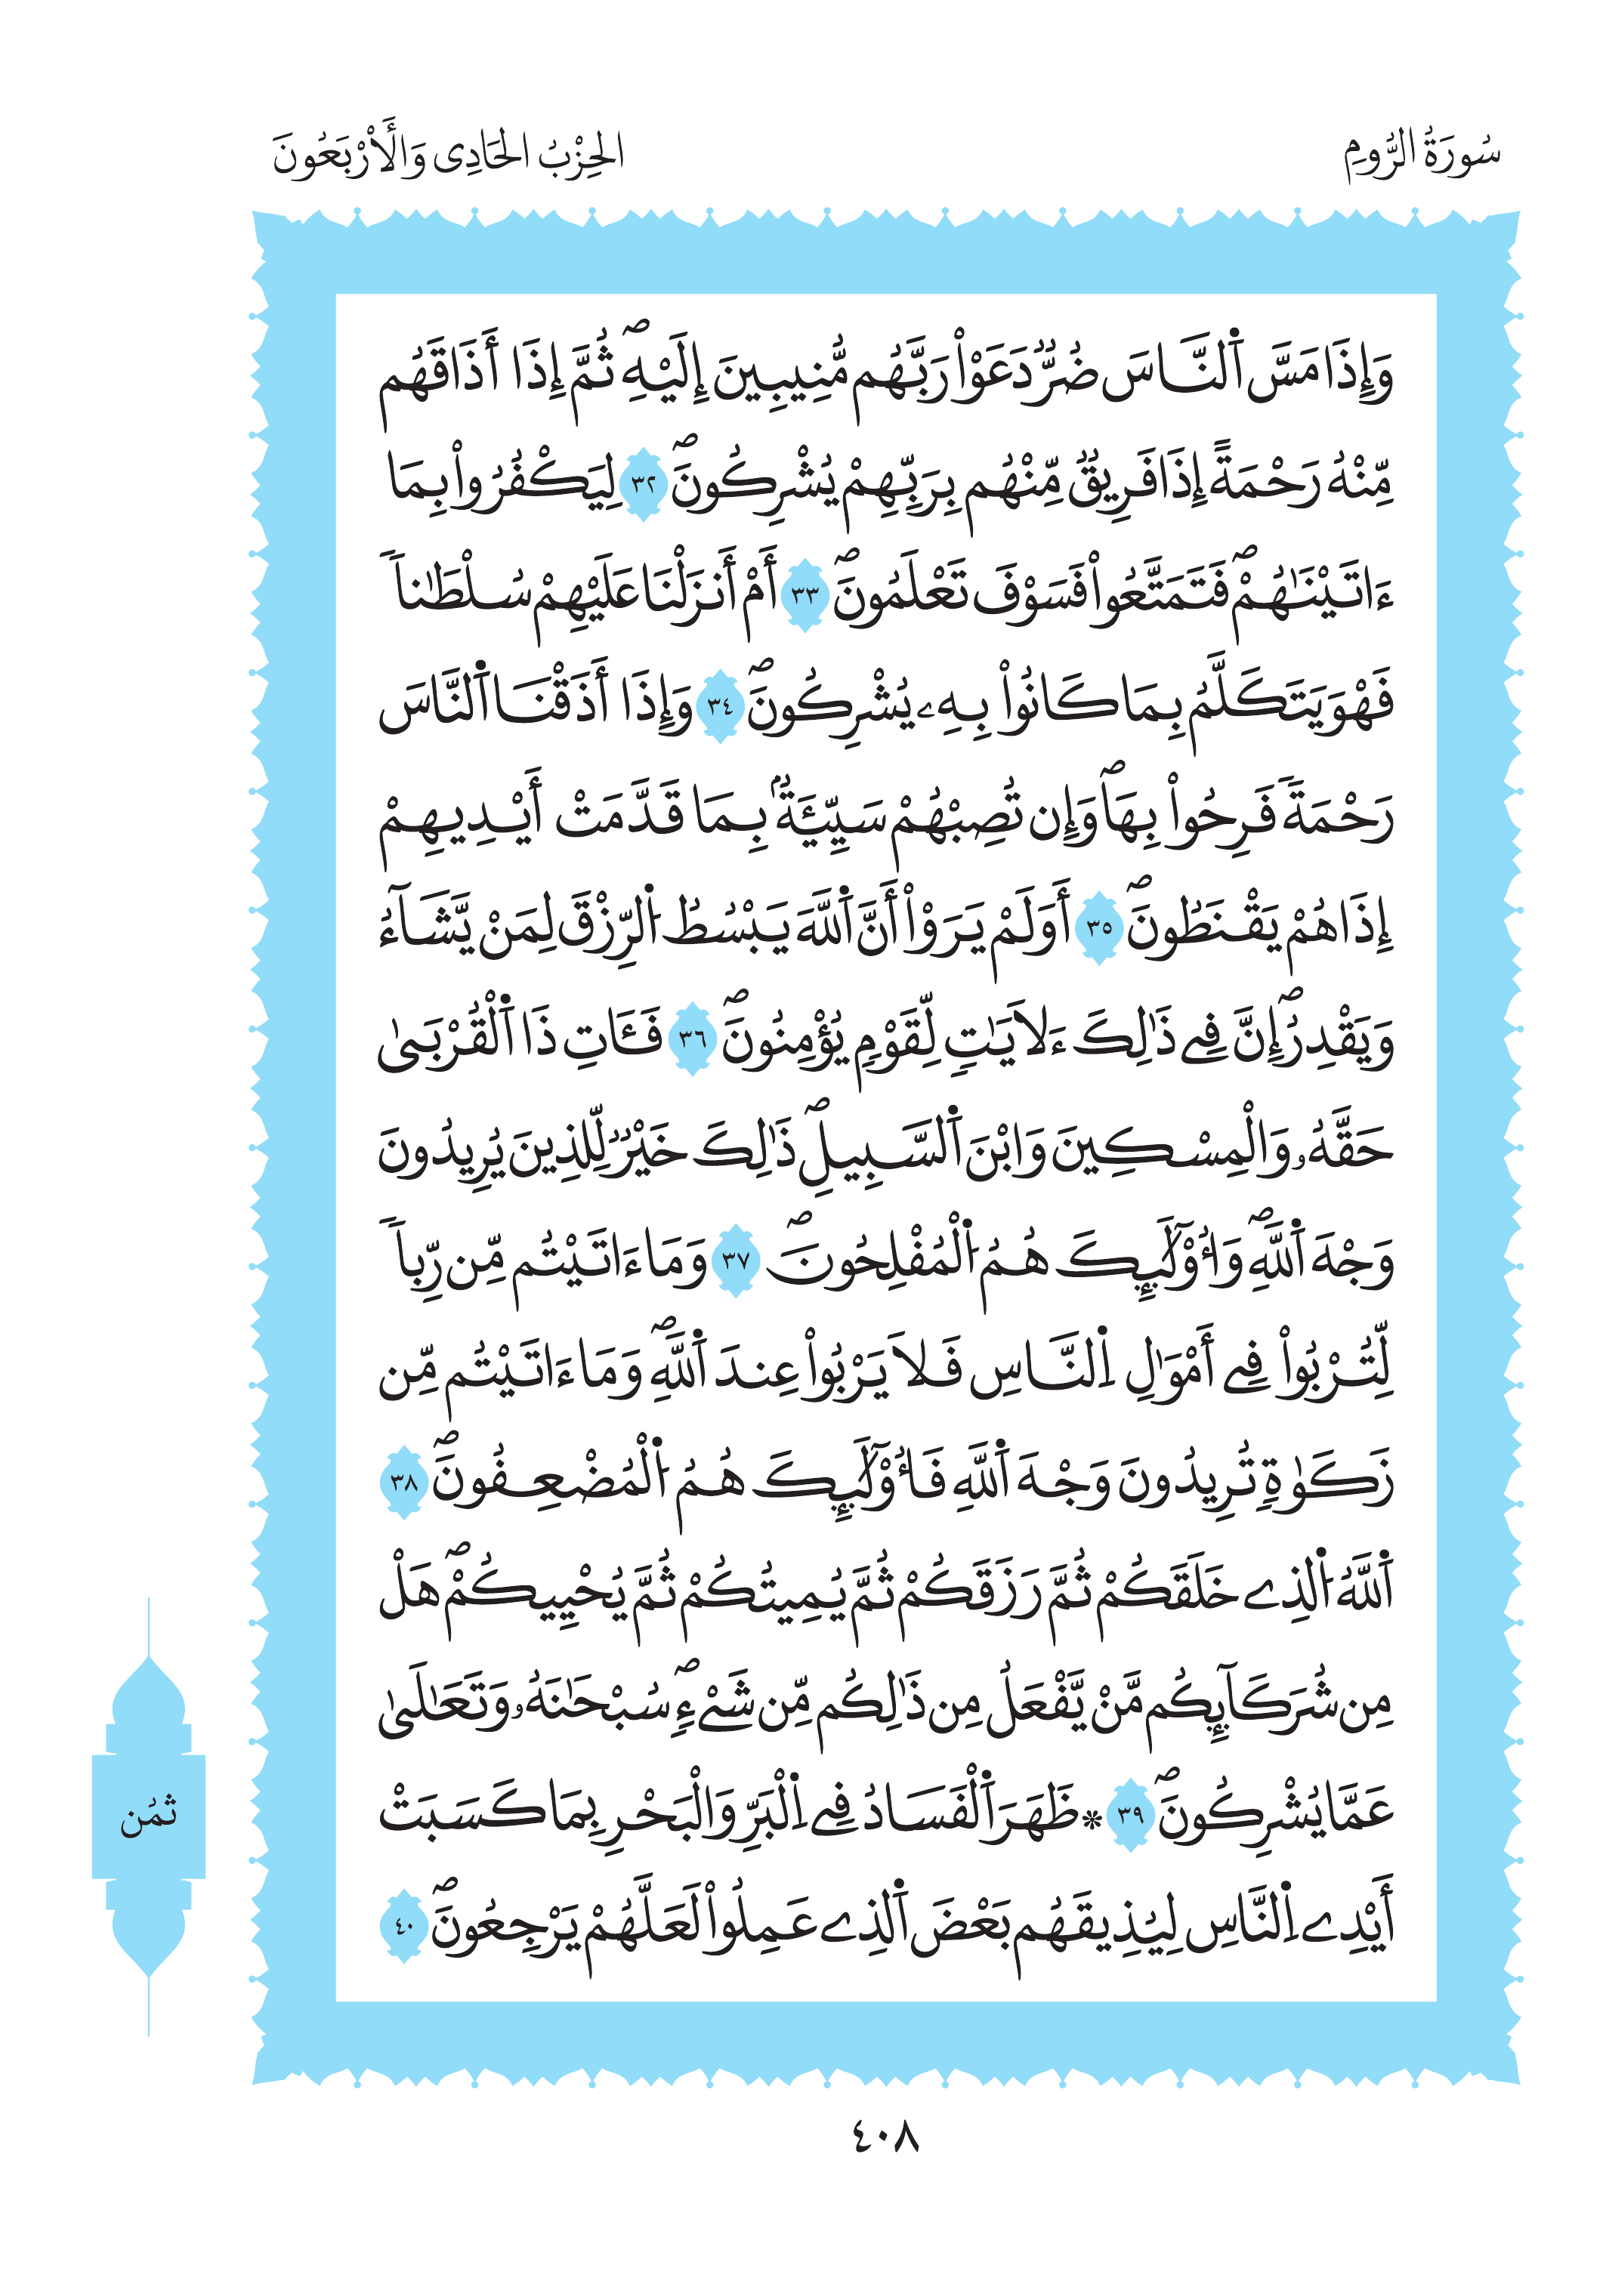 سُورَةُ الرُّومِ
الحِزْبُ الحَادِى وَالأَرْبَعُونَ
وَإِذَا مَسَّ اَ۬لنَّاسَ ضُرّٞ دَعَوْاْ رَبَّهُم مُّنِيبِينَ إِلَيْهِۖ ثُمَّ إِذَا أَذَاقَهُم
مِّنْهُ رَحْمَةً إِذَا فَرِيقٞ مِّنْهُم بِرَبِّهِمْ يُشْرِكُونَۖ ٣٢ لِيَكْفُرُواْ بِمَا
ءَاتَيْنَٰهُمْۖ فَتَمَتَّعُواْ فَسَوْفَ تَعْلَمُونَۖ ٣٣ أَمْ أَنزَلْنَا عَلَيْهِمْ سُلْطَٰناٗ
فَهْوَ يَتَكَلَّمُ بِمَا كَانُواْ بِهِۦ يُشْرِكُونَۖ ٣٤ وَإِذَا أَذَقْنَا اَ۬لنَّاسَ
رَحْمَةٗ فَرِحُواْ بِهَاۖ وَإِن تُصِبْهُمْ سَيِّئَةُۢ بِمَا قَدَّمَتْ أَيْدِيهِمْ
إِذَا هُمْ يَقْنَطُونَۖ ٣٥ أَوَلَمْ يَرَوْاْ أَنَّ اَ۬للَّهَ يَبْسُطُ اُ۬لرِّزْقَ لِمَنْ يَّشَآءُ
وَيَقْدِرُۖ إِنَّ فِے ذَٰلِكَ ءَلَايَٰتٖ لِّقَوْمٖ يُؤْمِنُونَۖ ٣٦ فَـَٔاتِ ذَا اَ۬لْقُرْبَىٰ
حَقَّهُۥ وَالْمِسْكِينَ وَابْنَ اَ۬لسَّبِيلِۖ ذَٰلِكَ خَيْرٞ لِّلذِينَ يُرِيدُونَ
وَجْهَ اَ۬للَّهِۖ وَأُوْلَٰٓئِكَ هُمُ اُ۬لْمُفْلِحُونَۖ ٣٧ وَمَا ءَاتَيْتُم مِّن رِّباٗ
لِّتُرْبُواْ فِے أَمْوَٰلِ اِ۬لنَّاسِ فَلَا يَرْبُواْ عِندَ اَ۬للَّهِۖ وَمَا ءَاتَيْتُم مِّن
زَكَوٰةٖ تُرِيدُونَ وَجْهَ اَ۬للَّهِ فَأُوْلَٰٓئِكَ هُمُ اُ۬لْمُضْعِفُونَۖ ٣٨
اَ۬للَّهُ اُ۬لذِے خَلَقَكُمْ ثُمَّ رَزَقَكُمْ ثُمَّ يُمِيتُكُمْ ثُمَّ يُحْيِيكُمْۖ هَلْ
مِن شُرَكَآئِكُم مَّنْ يَّفْعَلُ مِن ذَٰلِكُم مِّن شَےْءٖۖ سُبْحَٰنَهُۥ وَتَعَٰلَىٰ
عَمَّا يُشْرِكُونَۖ ٣٩ * ظَهَرَ اَ۬لْفَسَادُ فِے اِ۬لْبَرِّ وَالْبَحْرِ بِمَا كَسَبَتْ
أَيْدِے اِ۬لنَّاسِ لِيُذِيقَهُم بَعْضَ اَ۬لذِے عَمِلُواْ لَعَلَّهُمْ يَرْجِعُونَۖ ٤٠
ثمُن
٤٠٨